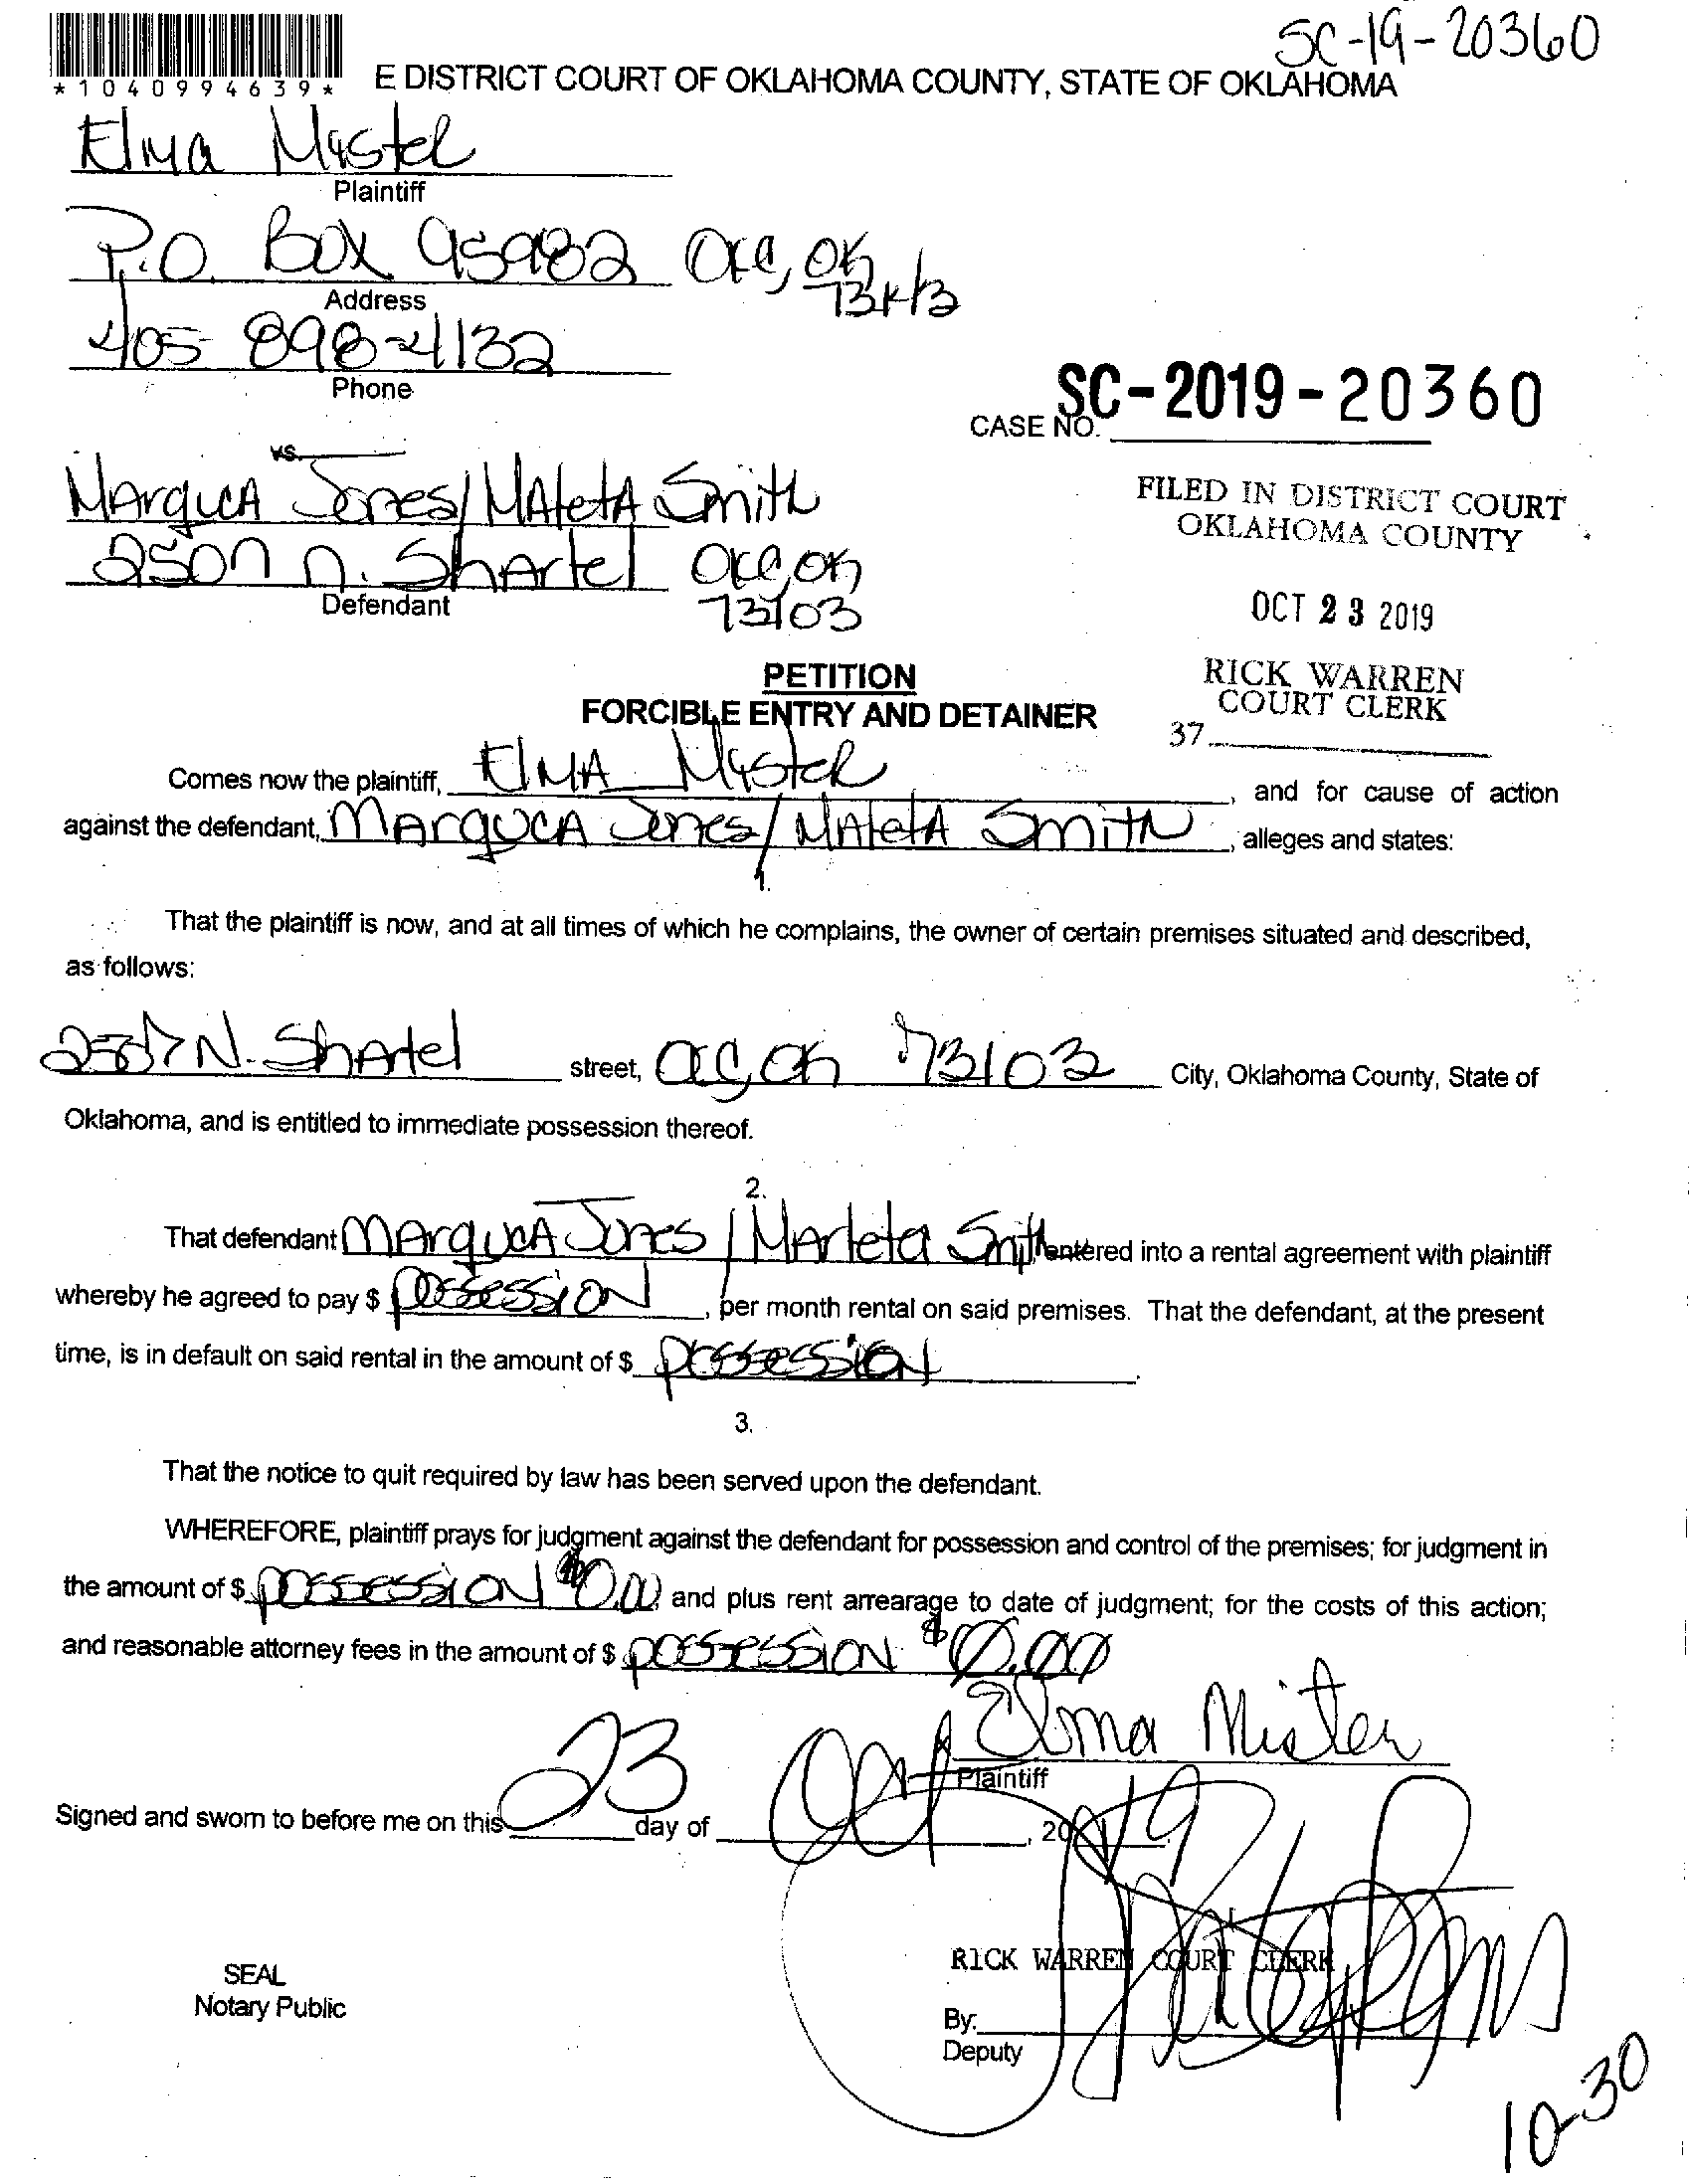 SC-19-20360
*1040994639*
E DISTRICT COURT OF OKLAHOMA COUNTY, STATE OF OKLAHOMA
Elma Mister
Plaintiff
P.O. Box 95982 OKC, OK
Address
405 898-4132
Phone
SC-2019-20360
CASE NO.
vs.
MArquCA Jones/ MAletA Smith
FILED IN DISTRICT COURT
OKLAHOMA COUNTY
2507 N. ShArtel OKC, OK
Defendant
73103
OCT 23 2019
PETITION
RICK WARREN
COURT CLERK
FORCIBLE ENTRY AND DETAINER
37
Comes now the plaintiff, ElMA Mister, and for cause of action
against the defendant, MArquCA Jones/ MAletA Smith, alleges and states:
1.
That the plaintiff is now, and at all times of which he complains, the owner of certain premises situated and described,
as follows:
2507 N. ShArtel street, OKC, OK 73103 City, Oklahoma County, State of
Oklahoma, and is entitled to immediate possession thereof.
2.
That defendant MArquCA Jones / Marleta Smith entered into a rental agreement with plaintiff
whereby he agreed to pay $ possession, per month rental on said premises. That the defendant, at the present
time, is in default on said rental in the amount of $ possession.
3.
That the notice to quit required by law has been served upon the defendant.
WHEREFORE, plaintiff prays for judgment against the defendant for possession and control of the premises; for judgment in
the amount of $ possession $0.00 and plus rent arrearage to date of judgment; for the costs of this action;
and reasonable attorney fees in the amount of $ possession $0.00
Elma Mister
Plaintiff
Signed and sworn to before me on this 23 day of Oct, 2019
RICK WARREN COURT CLERK
SEAL
Notary Public
By:
Deputy
10-30